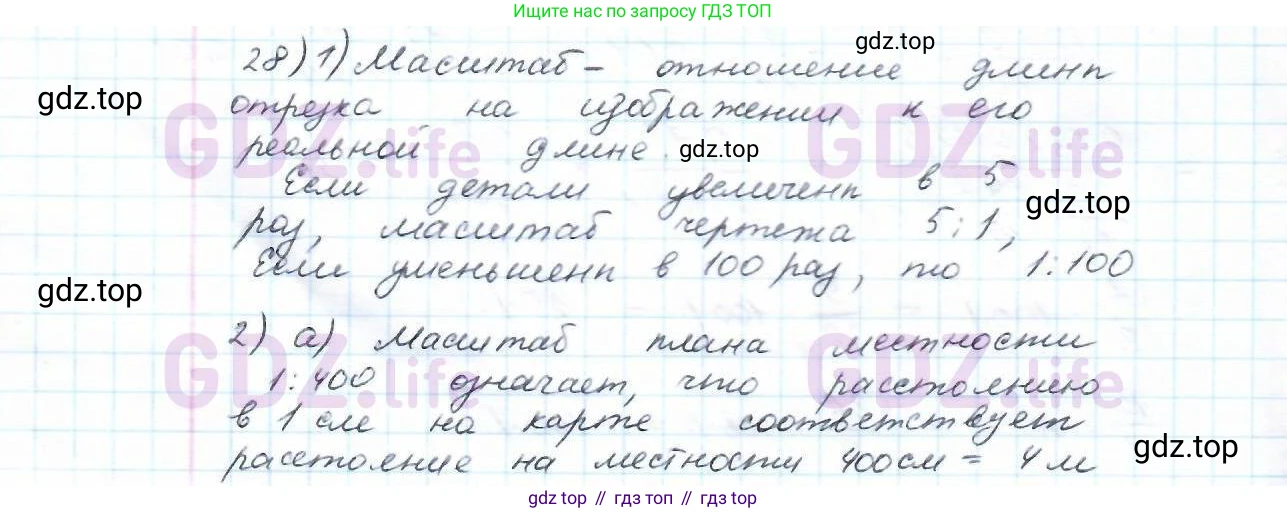 Ищите нас по запросу ГДЗ ТОП
gdz.top
28) 1) Масштаб – отношение длины
gdz.top
отрезка на изображении к его
GDZ.life GDZ.life
реальной длине.
gdz.top
Если детали увеличены в 5
gdz.top
раз, масштаб чертежа 5:1,
Если уменьшены в 100 раз, то 1:100
gdz.top
2) а) Масштаб плана местности
GDZ.life GDZ.life
1:400 означает, что расстоянию
в 1 см на карте соответствует
расстояние на местности 400 см = 4 м
gdz.top
gdz top // гдз топ // гдз top